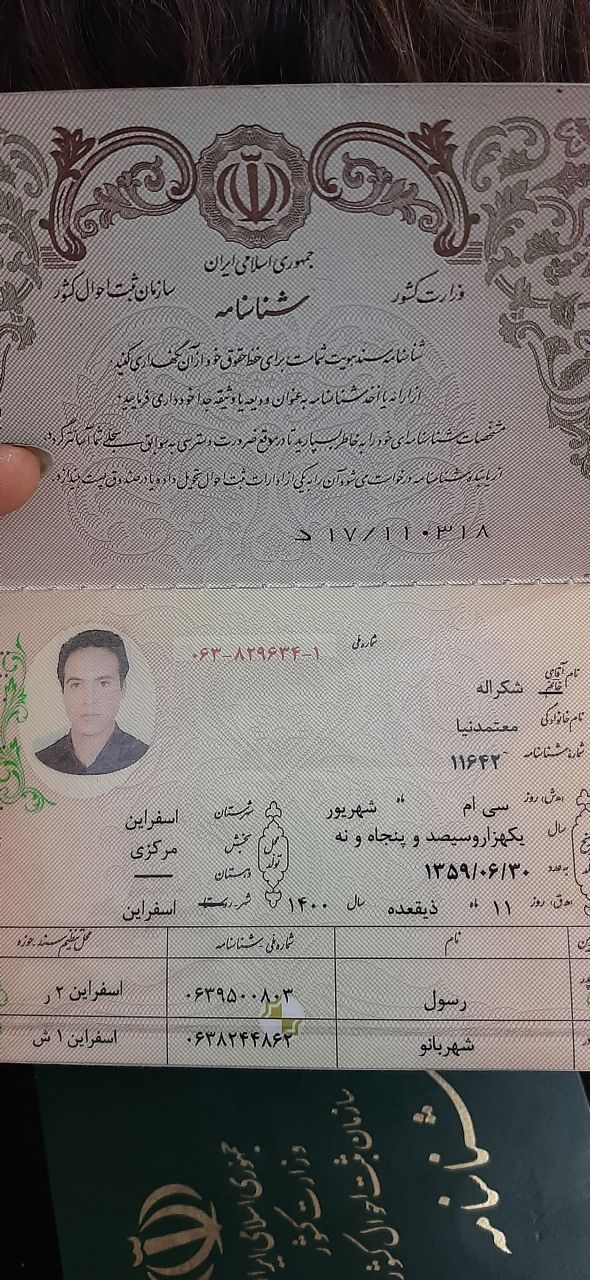 جمهوری اسلامی ایران
وزارت کشور
سازمان ثبت احوال کشور
شناسنامه
شناسنامه سند هویت شماست برای حفظ حقوق خود از آن نگهداری کنید.
از ارائه یا اخذ شناسنامه به عنوان ودیعه یا وثیقه جداً خودداری فرمایید.
مشخصات شناسنامه‌ای خود را به خاطر بسپارید تا در موقع ضرورت دسترسی به سوابق سجلی شما آسانتر گردد.
از یابنده شناسنامه درخواست می‌شود آن را به یکی از ادارات ثبت احوال تحویل داده یا در صندوق پست بیندازد.
د ۱۷/۱۱۰۳۱۸
شماره ملی
۰۶۳-۸۲۹۶۳۴-۱
نام آقای خانم شکراله
نام خانوادگی معتمدنیا
شماره شناسنامه ۱۱۶۴۲
روز سی ام ماه شهریور
سال یکهزاروسیصد و پنجاه و نه
به عدد ۱۳۵۹/۰۶/۳۰
روز ۱۱ ماه ذیقعده سال ۱۴۰۰
محل تولد
شهرستان اسفراین
بخش مرکزی
دهستان ـــ
شهر روستا اسفراین
نام شماره ملی - شناسنامه محل تنظیم سند - حوزه
رسول ۰۶۳۹۵۰۰۸۰۳ اسفراین ۲ ر
شهربانو ۰۶۳۸۲۴۴۸۶۲ اسفراین ۱ ش
شناسنامه
سازمان ثبت احوال کشور
وزارت کشور
جمهوری اسلامی ایران